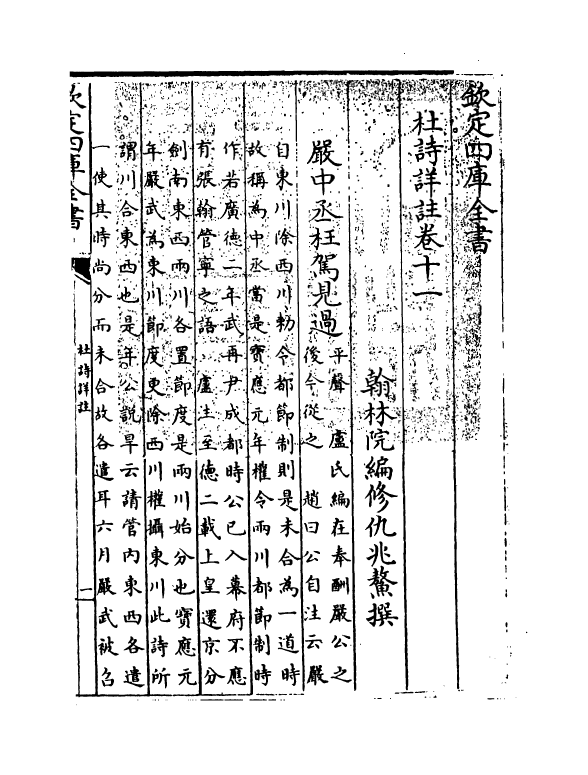 欽定四庫全書
杜詩詳註卷十一
翰林院編修仇兆鰲撰
嚴中丞枉駕見過
平聲 盧氏編在奉酬嚴公之
後今從之 趙曰公自注云嚴
自東川除西川勅令都節制則是未合為一道時
故稱為中丞當是寶應元年權令兩川都節制時
作若廣德二年武再尹成都時公已入幕府不應
有張翰管寧之語 盧注至德二載上皇還京分
劍南東西兩川各置節度是兩川始分也寶應元
年嚴武為東川節度更除西川權攝東川此詩所
謂川合東西也是年公說旱云請管內東西各遣
一使其時尚分而未合故各遣耳六月嚴武被召
欽定四庫全書
杜詩詳註
一